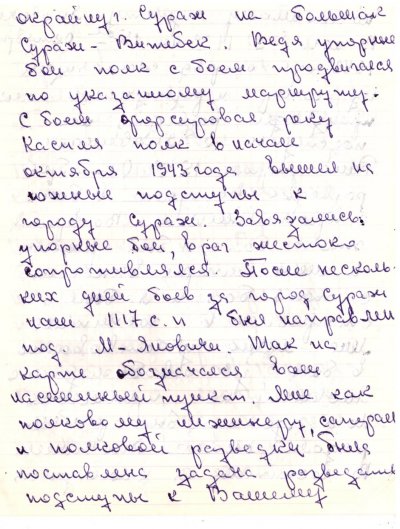 окрайну г. Сураж на большак
Сураж - Витебск. Ведя упорные
бои полк с боем продвигался
по указанному маршруту.
С боем форсировав реку
Каспля полк в начале
октября 1943 года вышел на
южные подступы к
городу Сураж. Завязались
упорные бои, враг жестоко
сопротивлялся. После несколь-
ких дней боев за город Сураж
наш 1117 с.п был направлен
под М-Яновичи. Так на
карте обозначался ваш
населенный пункт. Мне как
полковому инженеру, саперам
и полковой разведке была
поставлена задача разведать
подступы к Вашему